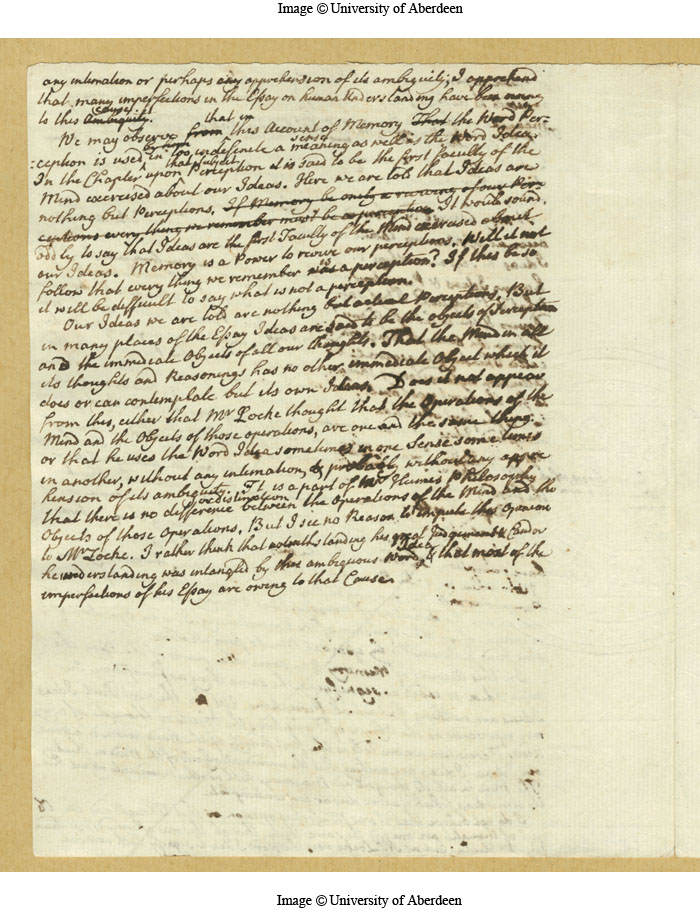 Image © University of Aberdeen
any intimation or perhaps any apprehension of its ambiguity; I apprehend
that many imperfections in the Essay on human Understanding have been owing
to this Ambiguity. cause.
We may observe from that in this Account of Memory That the Word Per-
:ception is used by him in too indefinite a meaning sense as well as the Word Idea.
In the Chapter upon Perception that subject it is said to be the first faculty of the
Mind exercised about our Ideas. Here we are told that Ideas are
nothing but Perceptions. If Memory be only a reviving of our Per-
ceptions every thing we remember must be a perception. It would sound
oddly to say that Ideas are the first Faculty of the Mind exercised about
our Ideas. Memory is a Power to revive our perceptions. Will it not
follow that every thing we remember is a perception? If this be so
it will be difficult to say what is not a perception.
Our Ideas we are told are nothing but actual Perceptions. But
in many places of the Essay Ideas are said to be the objects of Perception
and the immediate Objects of all our thoughts. That the Mind in all
its thoughts and Reasonings has no other immediate Object which it
does or can contemplate but its own Ideas. Does it not appear
from this, either that Mr Locke thought that the Operations of the
Mind and the Objects of those operations, are one and the same thing
or that he uses the Word Idea sometimes in one Sense sometimes
in another, without any intimation, & probably without any appre
hension of its ambiguity. It is a part of Mr Humes Philosophy
that there is no difference distinction between the Operations of the Mind and the
Objects of those Operations. But I see no Reason to impute this Opinion
to Mr Locke. I rather think that notwithstanding his great Judgement & Candor
he understanding was intangled by the ambiguous Word Idea, & that most of the
imperfections of his Essay are owing to that Cause.
Image © University of Aberdeen